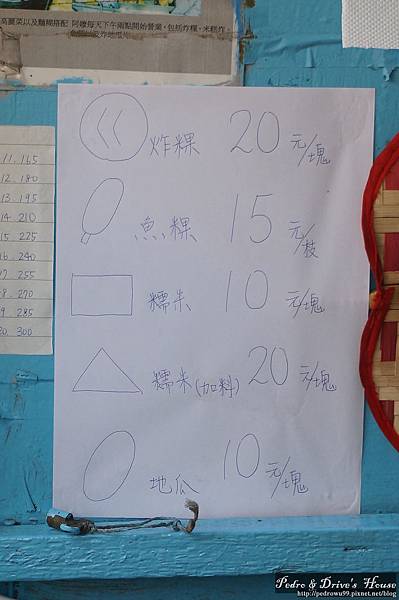 高麗菜以及麵糊搭配 阿嬤每天下午兩點開始營業,包括炸粿、米糕炸
11. 165
12. 180
13. 195
14. 210
15. 225
16. 240
17. 255
18. 270
19. 285
20. 300
炸粿 20 元/塊
魚粿 15 元/枝
糯米 10 元/塊
糯米(加料) 20 元/塊
地瓜 10 元/塊
Pedro & Drive's House
http://pedrowu99.pixnet.net/blog